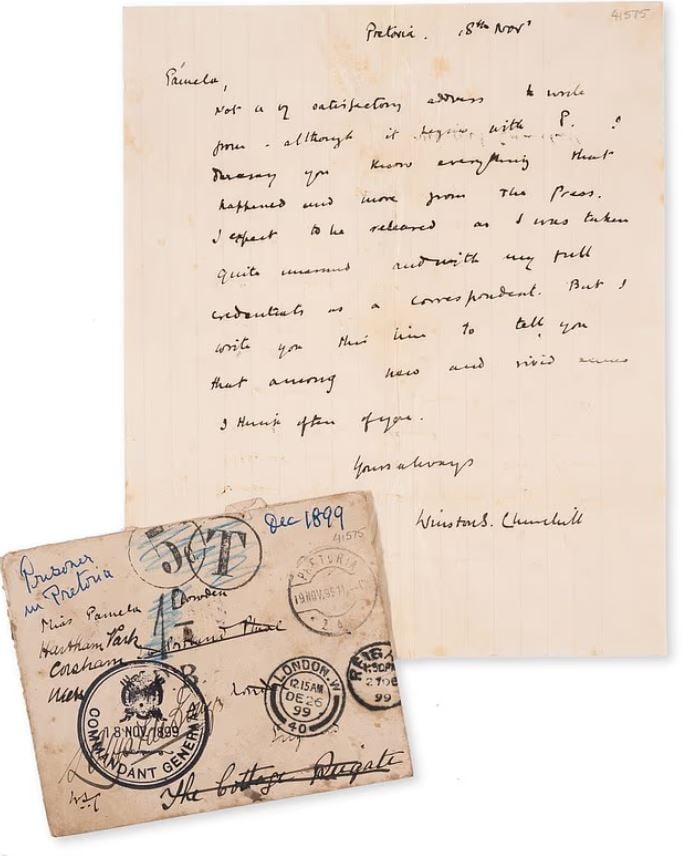 41575
Pretoria. 18th Novr
Pamela,
Not a vy satisfactory address to write
from - although it begins with P. I
daresay you know everything that
happened and more from the Press.
I expect to be released as I was taken
quite unarmed and with my full
credentials as a correspondent. But I
write you this line to tell you
that among new and vivid scenes
I think often of you.
Yours always
Winston S. Churchill
Dec 1899
41575
Prisoner
in Pretoria
5c T
PRETORIA
19 NOV. 99
Miss Pamela Plowden
Hartham Park
Corsham
Portland Place
LONDON. W
12.15 AM
DE 26
99
40
REIG
27 DE
99
COMMANDANT GENERAAL
18 NOV 1899
WSC
The Cottage Reigate